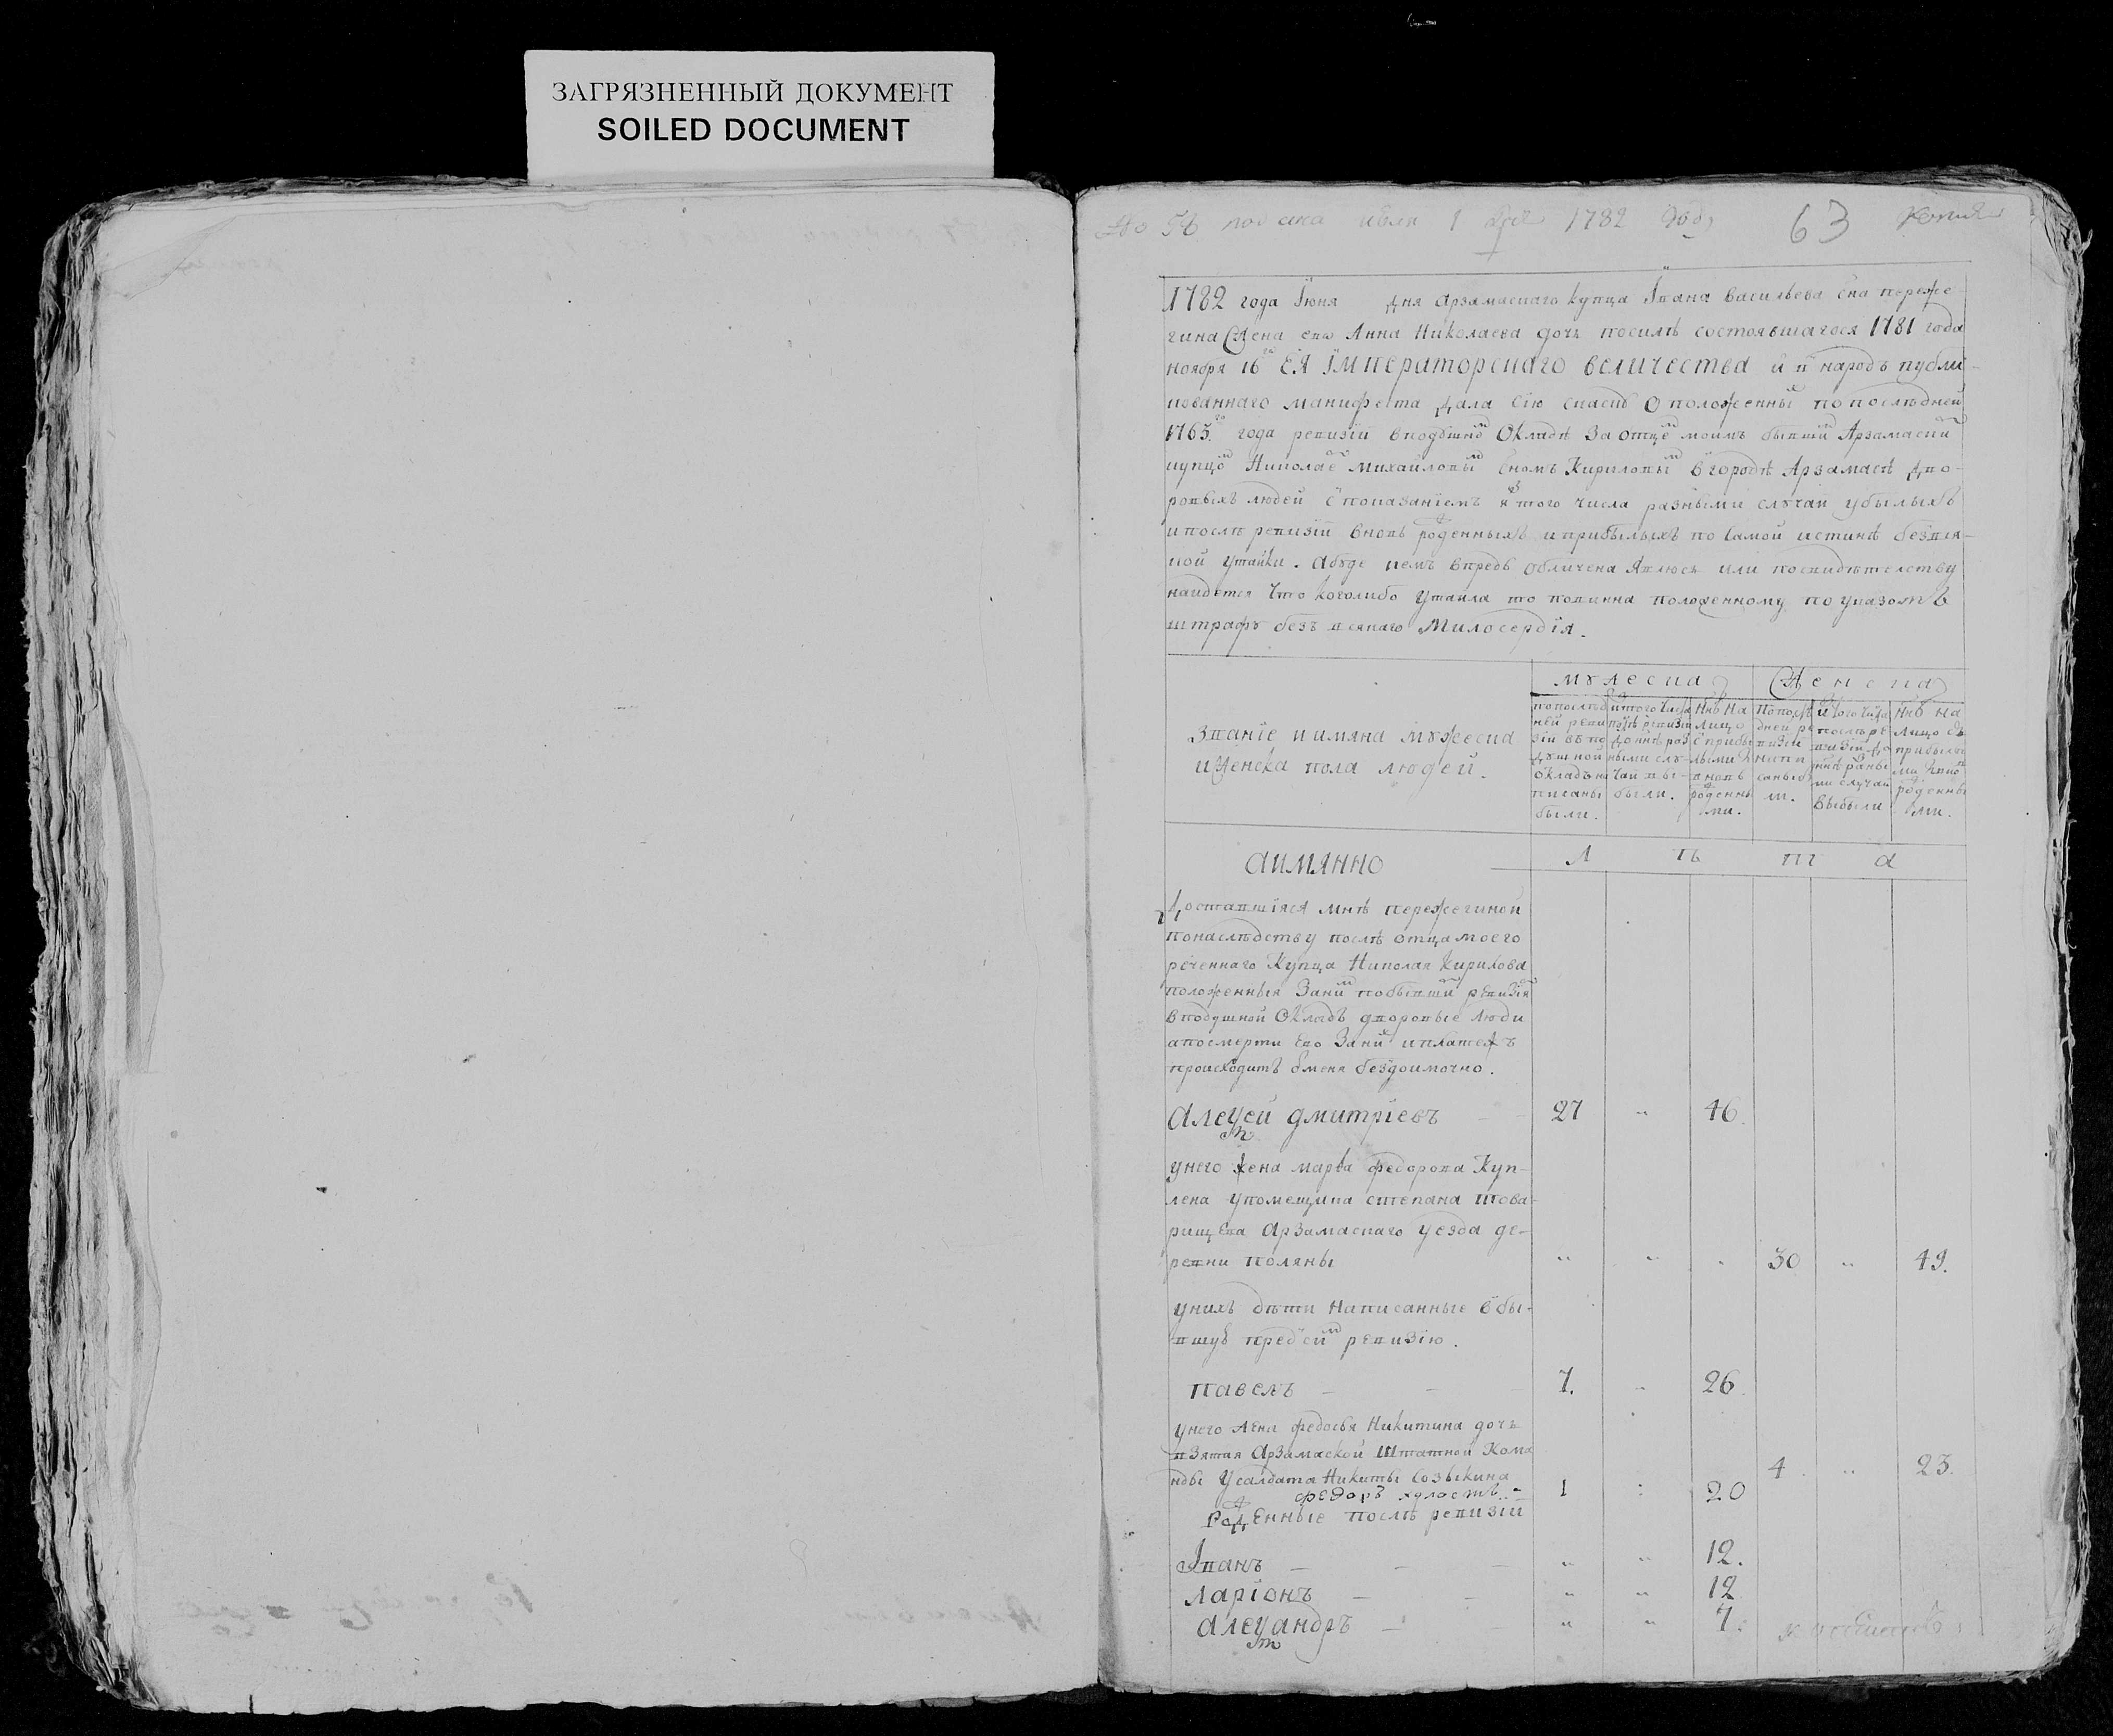 ЗАГРЯЗНЕННЫЙ ДОКУМЕНТ
SOILED DOCUMENT
№ 58 подана июля 1 дня 1782 году
63
копия
1782 года Iюня дня арзамаскаго купца Iвана васильева сна переже-
гина жена ево Анна Николаева дочь посилѣ состоявшагося 1781 года
ноября 16го ЕЯ IМПЕРАТОРСКАГО ВЕЛИЧЕСТВА и в народъ публи-
кованнаго манифеста дала сiю скаску о положенныхъ по послѣдней
1763го года ревизiи вподушнѡмъ окладѣ за отцемъ моимъ бывшимъ Арзамаскимъ
купцомъ Николаемъ михайловымъ сномъ Кириловымъ вгородѣ Арзамасѣ дво-
ровыхъ людей спонаказанiемъ изтого числа разными случаи убылыхъ
ипослѣ ревизiи вновь рожденныхъ иприбылыхъ по самой истинѣ безвся-
кой утайки. абуде вчемъ впредь обличена явлюсь или посвидѣтелству
найдется что коголибо утаила то повинна положенному поуказомъ
штрафу безъ всякаго Милосердiя.
мужеска
женска
Званiе иимяна мужеска
иженска пола людей.
попослѣд
ней реви
зiи въпо
душной
окладъна
писаны
были.
изтого числа
послѣ ревизiи
доннѣ раз
ными слу-
чаи вы-
были.
ннѣ на
лицо
сприбы
лыми и
вновь
рожденны
ми.
попослѣ
дней ре
визiи
напи
саны бы
ли.
изтого числа
послѣ ре
визiи до
ннѣ разны
ми случаи
выбыли
ннѣ на
лицо съ
прибылы
ми ивно
рожденны
ми.
аимянно
л ѣ т а
доставшiяся мнѣ пережегиной
понаслѣдству послѣ отца моего
реченнаго купца Николая кирилова
положенныя занимъ побывшей ревизiи
вподушной окладъ дворовые люди
апосмерти ево заних иплатежъ
происходитъ отменя бездоимочно.
Алеѯей дмитрiевъ 27 „ 46.
унего жена марѳа федорова куп-
лена упомещика степана това-
рищева арзамаскаго уезда де-
ревни поляны „ „ „ 30 „ 49.
унихъ дѣти написанные вбы-
вшую предсимъ ревизiю.
павелъ 7. „ 26.
унего жена федосья Никитина дочь
взятая арзамаской штатной кома
нды усалдата никиты созыкина 4 „ 23.
федоръ холостъ 1 : 20
Рожденные послѣ ревизiи
Iванъ „ „ 12.
ларiонъ „ „ 12
алеѯандръ „ „ 7.